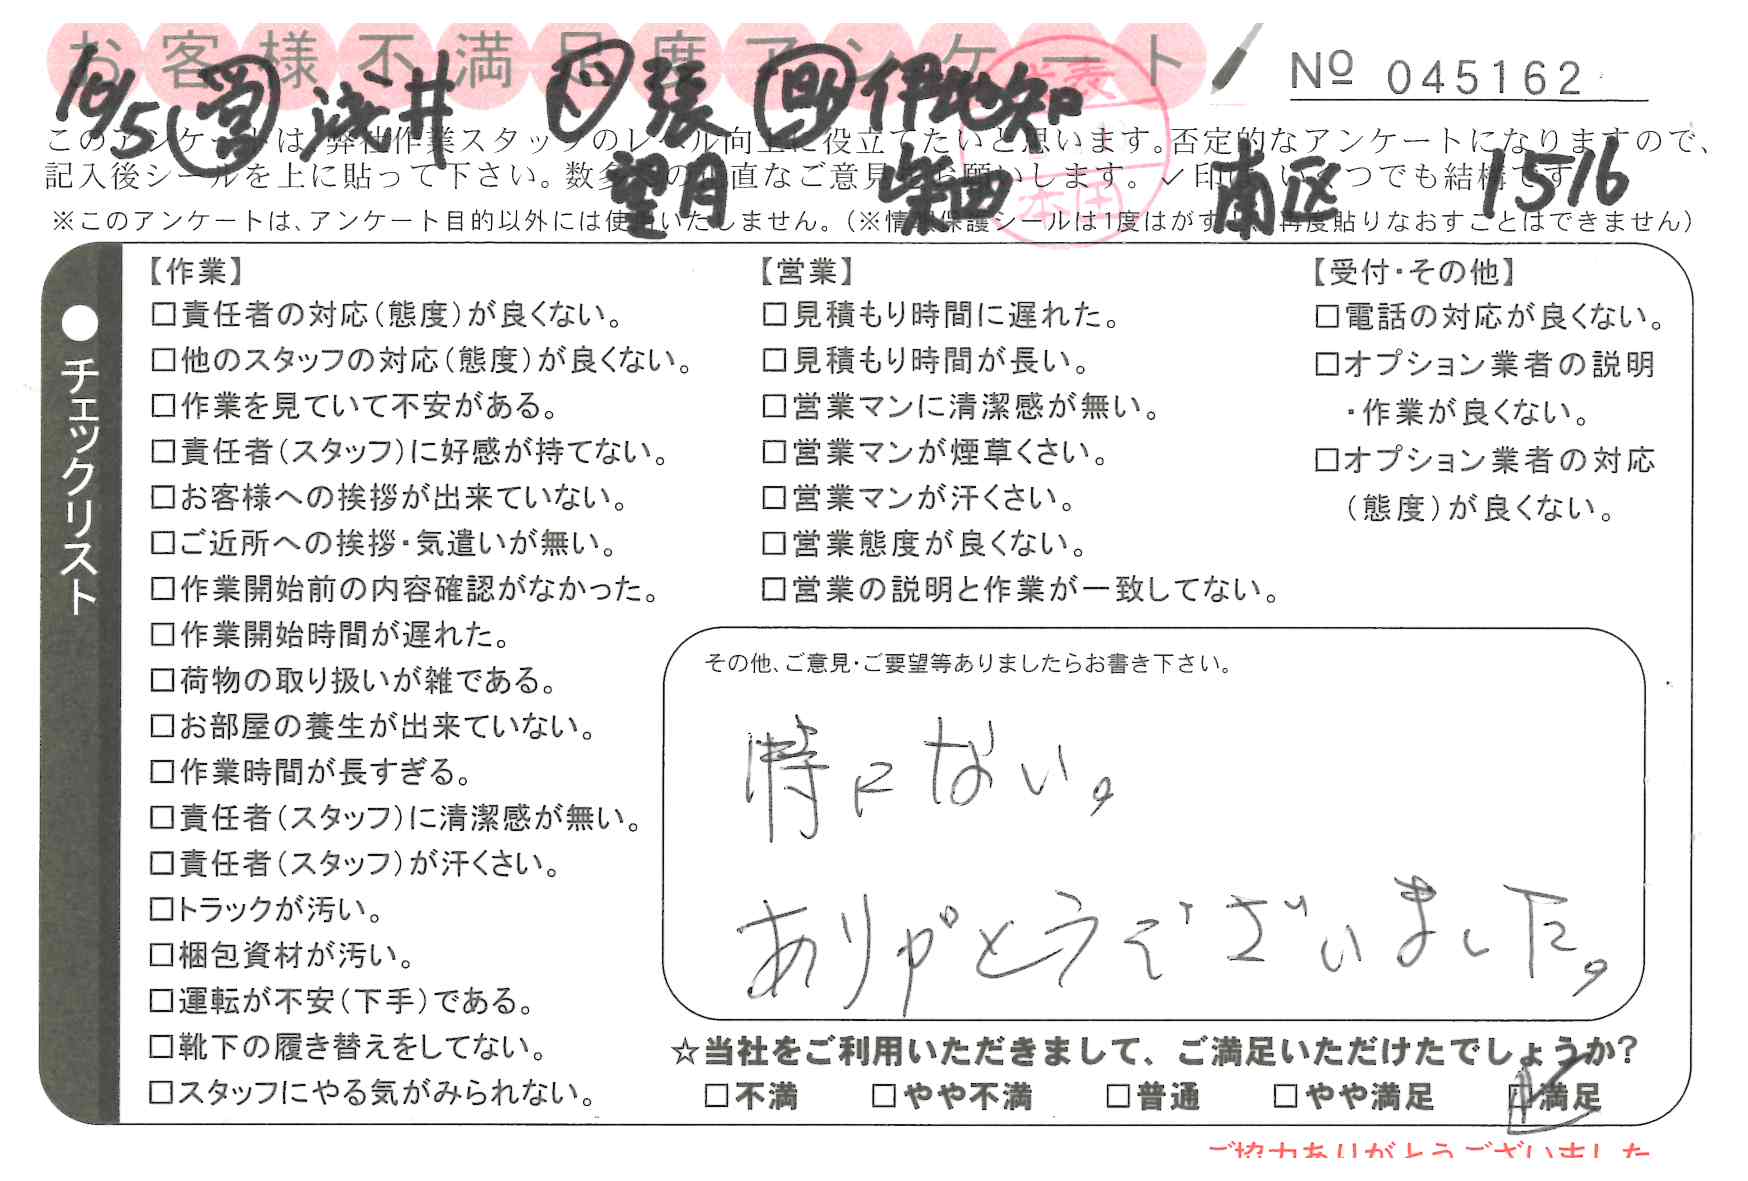 お客様不満足度アンケート
№ 045162
10/5 営 浅井 ト 張 助 伊地知
望月 柴田 南区 1516
このアンケートは、弊社作業スタッフのレベル向上に役立てたいと思います。否定的なアンケートになりますので、
記入後シールを上に貼って下さい。数多くの正直なご意見をお願いします。✓印は、いくつでも結構です。
※このアンケートは、アンケート目的以外には使用いたしません。(※情報保護シールは1度はがすと、再度貼りなおすことはできません)
●チェックリスト
【作業】
□責任者の対応(態度)が良くない。
□他のスタッフの対応(態度)が良くない。
□作業を見ていて不安がある。
□責任者(スタッフ)に好感が持てない。
□お客様への挨拶が出来ていない。
□ご近所への挨拶・気遣いが無い。
□作業開始前の内容確認がなかった。
□作業開始時間が遅れた。
□荷物の取り扱いが雑である。
□お部屋の養生が出来ていない。
□作業時間が長すぎる。
□責任者(スタッフ)に清潔感が無い。
□責任者(スタッフ)が汗くさい。
□トラックが汚い。
□梱包資材が汚い。
□運転が不安(下手)である。
□靴下の履き替えをしてない。
□スタッフにやる気がみられない。
【営業】
□見積もり時間に遅れた。
□見積もり時間が長い。
□営業マンに清潔感が無い。
□営業マンが煙草くさい。
□営業マンが汗くさい。
□営業態度が良くない。
□営業の説明と作業が一致してない。
【受付・その他】
□電話の対応が良くない。
□オプション業者の説明
・作業が良くない。
□オプション業者の対応
(態度)が良くない。
その他、ご意見・ご要望等ありましたらお書き下さい。
特にない。
ありがとうございました。
☆当社をご利用いただきまして、ご満足いただけたでしょうか?
□不満 □やや不満 □普通 □やや満足 ☑満足
ご協力ありがとうございました